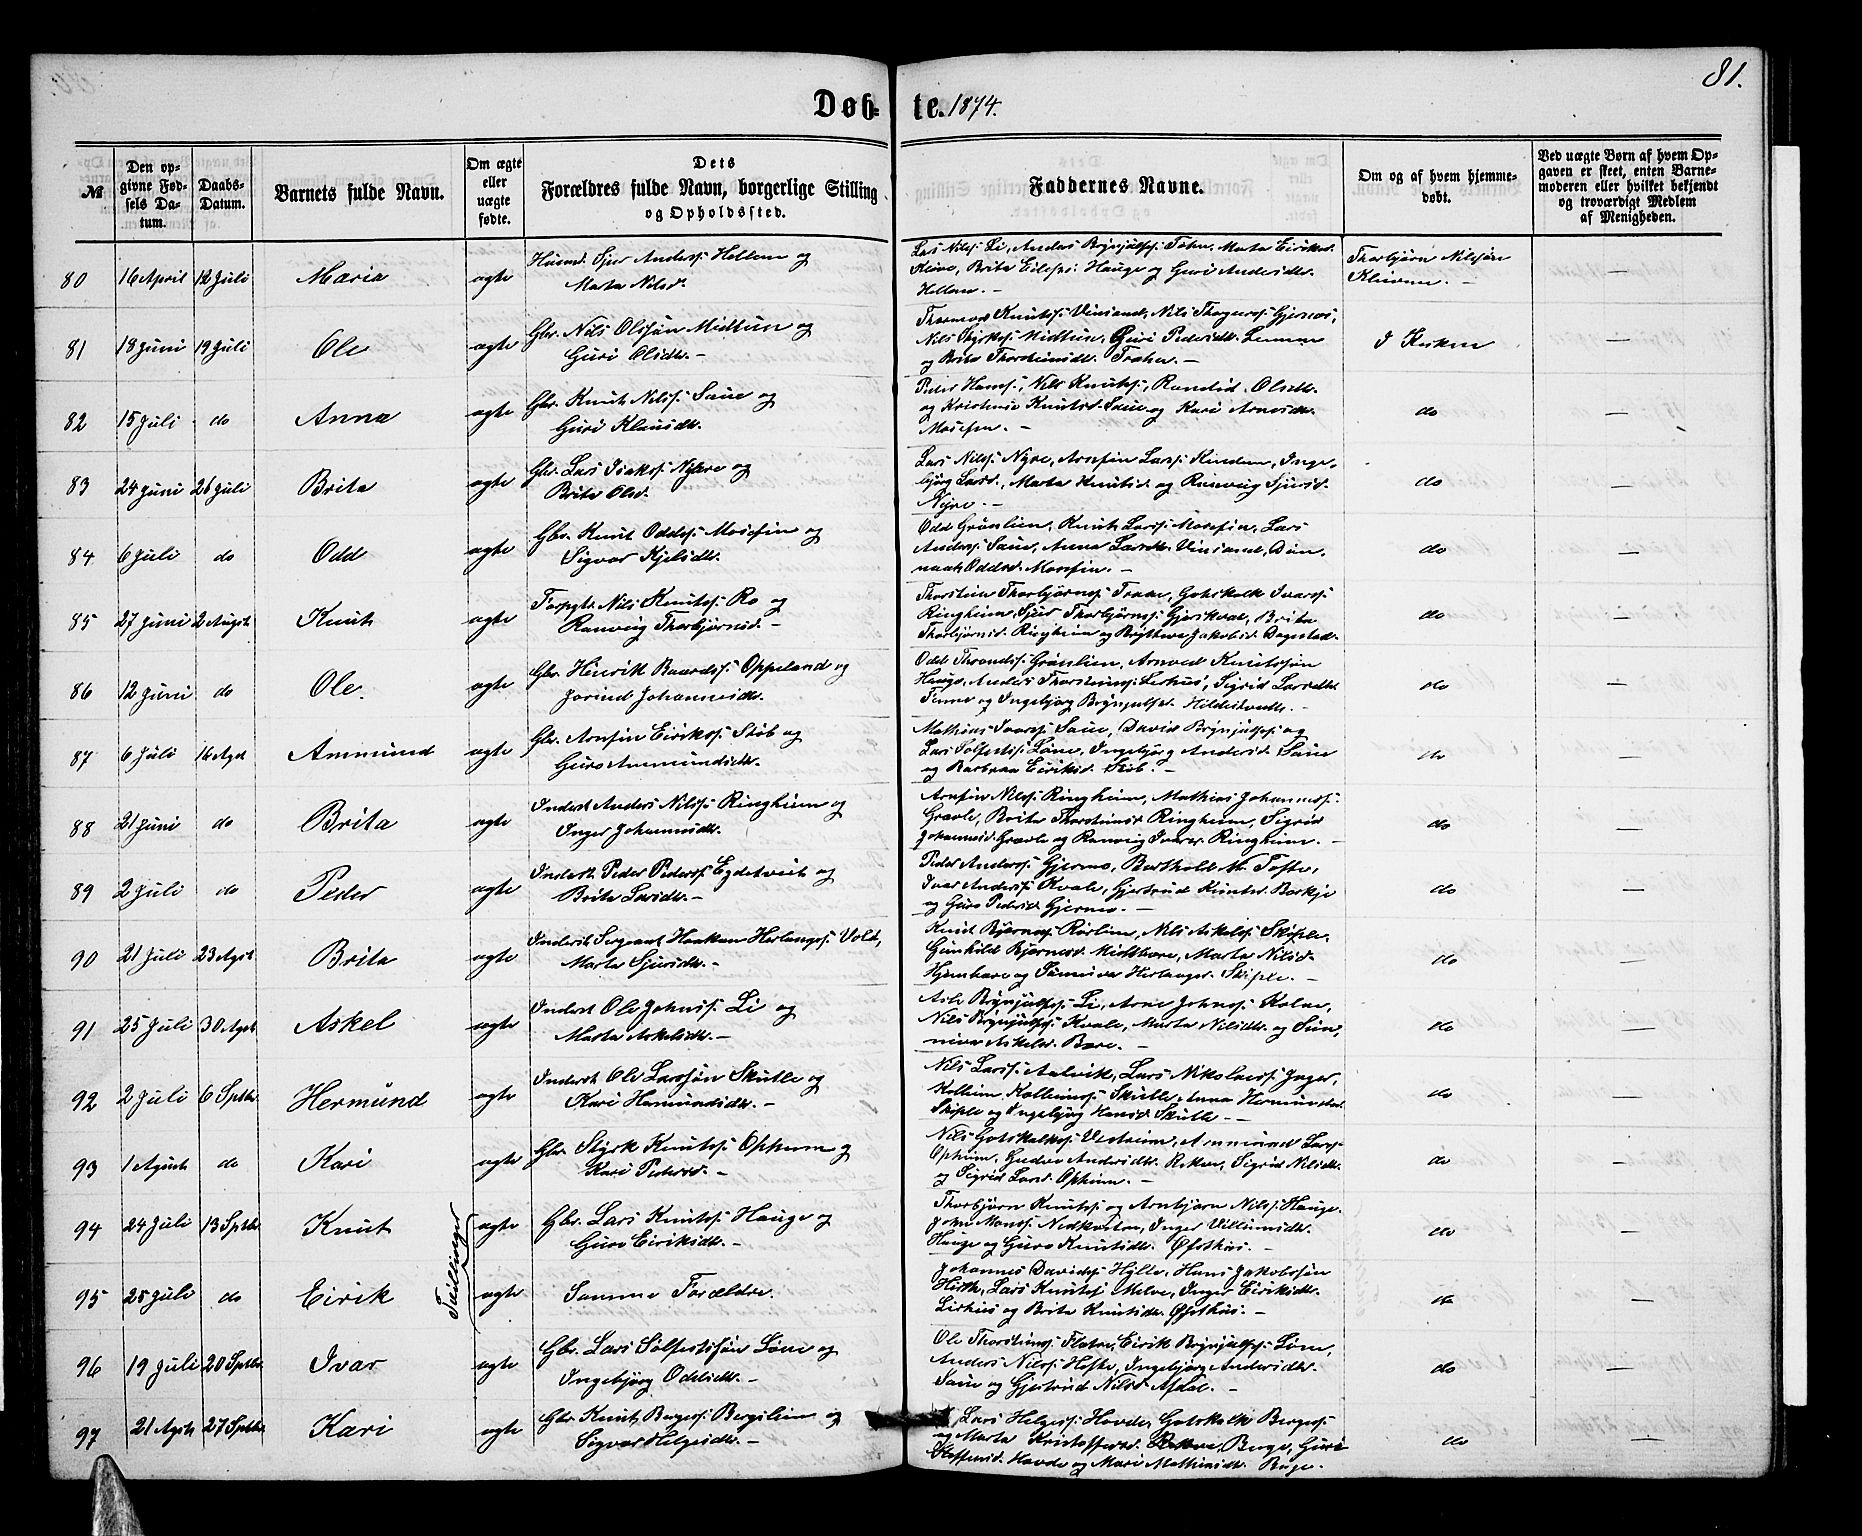 81.
Døb- te. 1874.
№
Den op-
givne Fød-
sels Da-
tum.
Daabs-
Datum.
Barnets fulde Navn.
Om ægte
eller
uægte
fødte.
Dets
Forældres fulde Navn, borgerlige Stilling
og Opholdssted.
Faddernes Navne.
Om og af hvem hjemme-
døbt.
Ved uægte Børn af hvem Op-
gaven er skeet, enten Barne-
moderen eller hvilket bekjendt
og troværdigt Medlem
af Menigheden.
80 16 April 12 Juli Maria ægte
Husmd. Sjur Anderss: Hellene og
Marta Nilsd.
Lars Nilss: Li, Anders Brynjulfss: Marta Eiriksd.
Brita Hauge og Guri Andersdtr.
Hellene. —
Thorbjørn Nilssøn
Kløvene. —
—
81 18 Juni 19 Juli Ole ægte
Gbr. Nils Olssøn Midtun og
Guri Olsdtr. —
Thormod Knutss: Vinsand, Nils Gjernes,
Nils Styrkss: Midtun, Guri Pedersdtr.
og Brita Thorsteinsdtr. —
I Kirken
—
82 15 Juli do Anna ægte
Gbr. Knut Nilss: Saue og
Guri Klausdtr.
Peder Hanss:, Nils Knutss:, Randid Olsdtr.
og Kristense Knutsd. Saue og Kari Arnesdtr.
Mossefin. —
do —
83 24 Juni 26 Juli Brita ægte
Gbr. Lars Isakss: Nyre og
Brita Olsd.
Lars Nilss: Nyre, Arnfin Larss: Rindem, Inge-
bjørg Larsd., Marta Knutsd. og Ranveig Sjursd.
Nyre. —
do —
84 6 Juli do Odd ægte
Gbr. Knut Oddss: Mossefin og
Sigvor Kjelsdtr.
Odd Grønlien, Knut Larss: Mossfin, Lars
Anderss: Saue, Anna Larsdtr. Vinsand,
Oddsd. Mossfin. —
do —
85 27 Juni 2 Augst. Knut ægte
Forpgtr. Nils Knutss: Ro og
Ranveig Thorbjørnsd. —
Thorstein Thorbjørnss: Gotskalk Ivarss:
Ringheim, Sjur Thorbjørnss: Gjerskvoe, Brita
Thorbjørnsd. Ringheim og Jakobsd. Dagestad.
do —
86 12 Juni do Ole. ægte
Gbr. Henrik Baardss: Oppeland og
Jorind Johannesdtr.
Odd Throndss: Grønlien, Arnved Knutssøn
Hauge, Anders Thorsteinss: Lirhus, Sigrid Larsdtr.
Finne og Ingebjørg Brynjulfsd. —
do —
87 6 Juli 16 Agst Ammund ægte
Gbr. Arnfin Eirikss: Støb og
Guro Ammundsdtr.
Mathias Ivarss: Saue, David Brynjulfss: og
Lars Sølfestss: Løne, Ingebjørg Andersd. Saue
og Barbraa Eiriksd. Støb. —
do —
88 21 Juni do Brita ægte
Inderst Anders Nilss: Ringheim og
Inger Johannesdtr.
Arnfin Nilss: Ringheim, Mathias Johanness:
Gravle, Brita Thorsteinsd. Ringheim, Sigrid
Johannesd. Gravle og Ranveig Ivarsd. Ringheim. —
do —
89 2 Juli do Peder ægte
Inderst. Peder Pederss: Egdetveit og
Brita Larsdtr. —
Peder Anderss: Gjerme, Barthold Tofte,
Ivar Anderss: Kvale, Gjertrud Knutsd.
og Guro Pedersd. Gjerme. —
do —
90 21 Juli 23 Agst. Brita ægte
Inderst. Sergeant Haakon Herlaugss: Vold,
Marta Sjursdtr. —
Knut Bjørness: Rørlien, Nils Askelss: Skiple,
Gunhild Bjørnesd. Midtbøre, Marta Nilsd.
og Sunneva Herlaugsd. Skiple. —
do —
91 25 Juli 30 Agst. Askel ægte
Inderst Ole Johnss: Li og
Marta Askelsdtr. —
Asle Brynjulfss: Li, Arne Johnss:
Nils Brynjulfss: Kvale, Marta Nilsdtr. og Sun-
niva Askelsd. —
do —
92 2 Juli 6 Sptbr. Hermund ægte
Inderst Ole Larssøn Skutle og
Kari Hermundsdtr. —
Nils Larss: Aalvik, Lars Nikolaess:
Kolbein Kolbeinss: Skutle, Anna Hermundsd.
Skiple og Ingebjørg Hansd. Skutle —
do —
93 1 Agust do Kari ægte
Gbr. Styrk Knutss: Opheim og
Kari Pedersd. —
Nils Gotskalkss: Ammund Larss:
Opheim, Gudve Andersdtr. Rekve, Sigrid Nilsdtr.
og Sigrid Larsd. Opheim. —
do —
Tvillinger
94 24 Juli 13 Sptbr. Knut ægte
Gbr. Lars Knutss: Hauge og
Guro Eiriksdtr. —
Thorbjørn Knutss: og Arnbjørn Nilss: Hauge.
John Monss: Nedkvitne, Inger Villumsdtr.
Hauge og Guro Knutsdtr. Øfsthus. —
do —
95 25 Juli do Eirik ægte
Samme Forældre.
Johannes Davidss: Hylle, Hans Jakobssøn
Hirth, Lars Knutss: Melve, Inger Eiriksdtr.
Lirhus og Brita Knutsdtr. Øfsthus. —
do —
96 19 Juli 20 Sptbr. Ivar ægte
Gbr. Lars Sølfestssøn Løne og
Ingebjørg Oddsdtr. —
Ole Thorsteinss: Eirik Brynjulfss: Løne,
Anders Nilss: Hefte, Ingebjørg Andersdtr.
Saue og Gjertrud Nilsd. Afdal. —
do —
97 21 Agst. 27 Sptbr. Kari ægte
Gbr. Knut Børgess: Bergslien og
Sigvor Helgesdtr. —
Lars Helgess: Hovde, Gotskalk Børgess:
og Marta Kristoffersd. Rekve, Guri
Steffensd. Hovde og Mari Mathiasdtr. —
do —